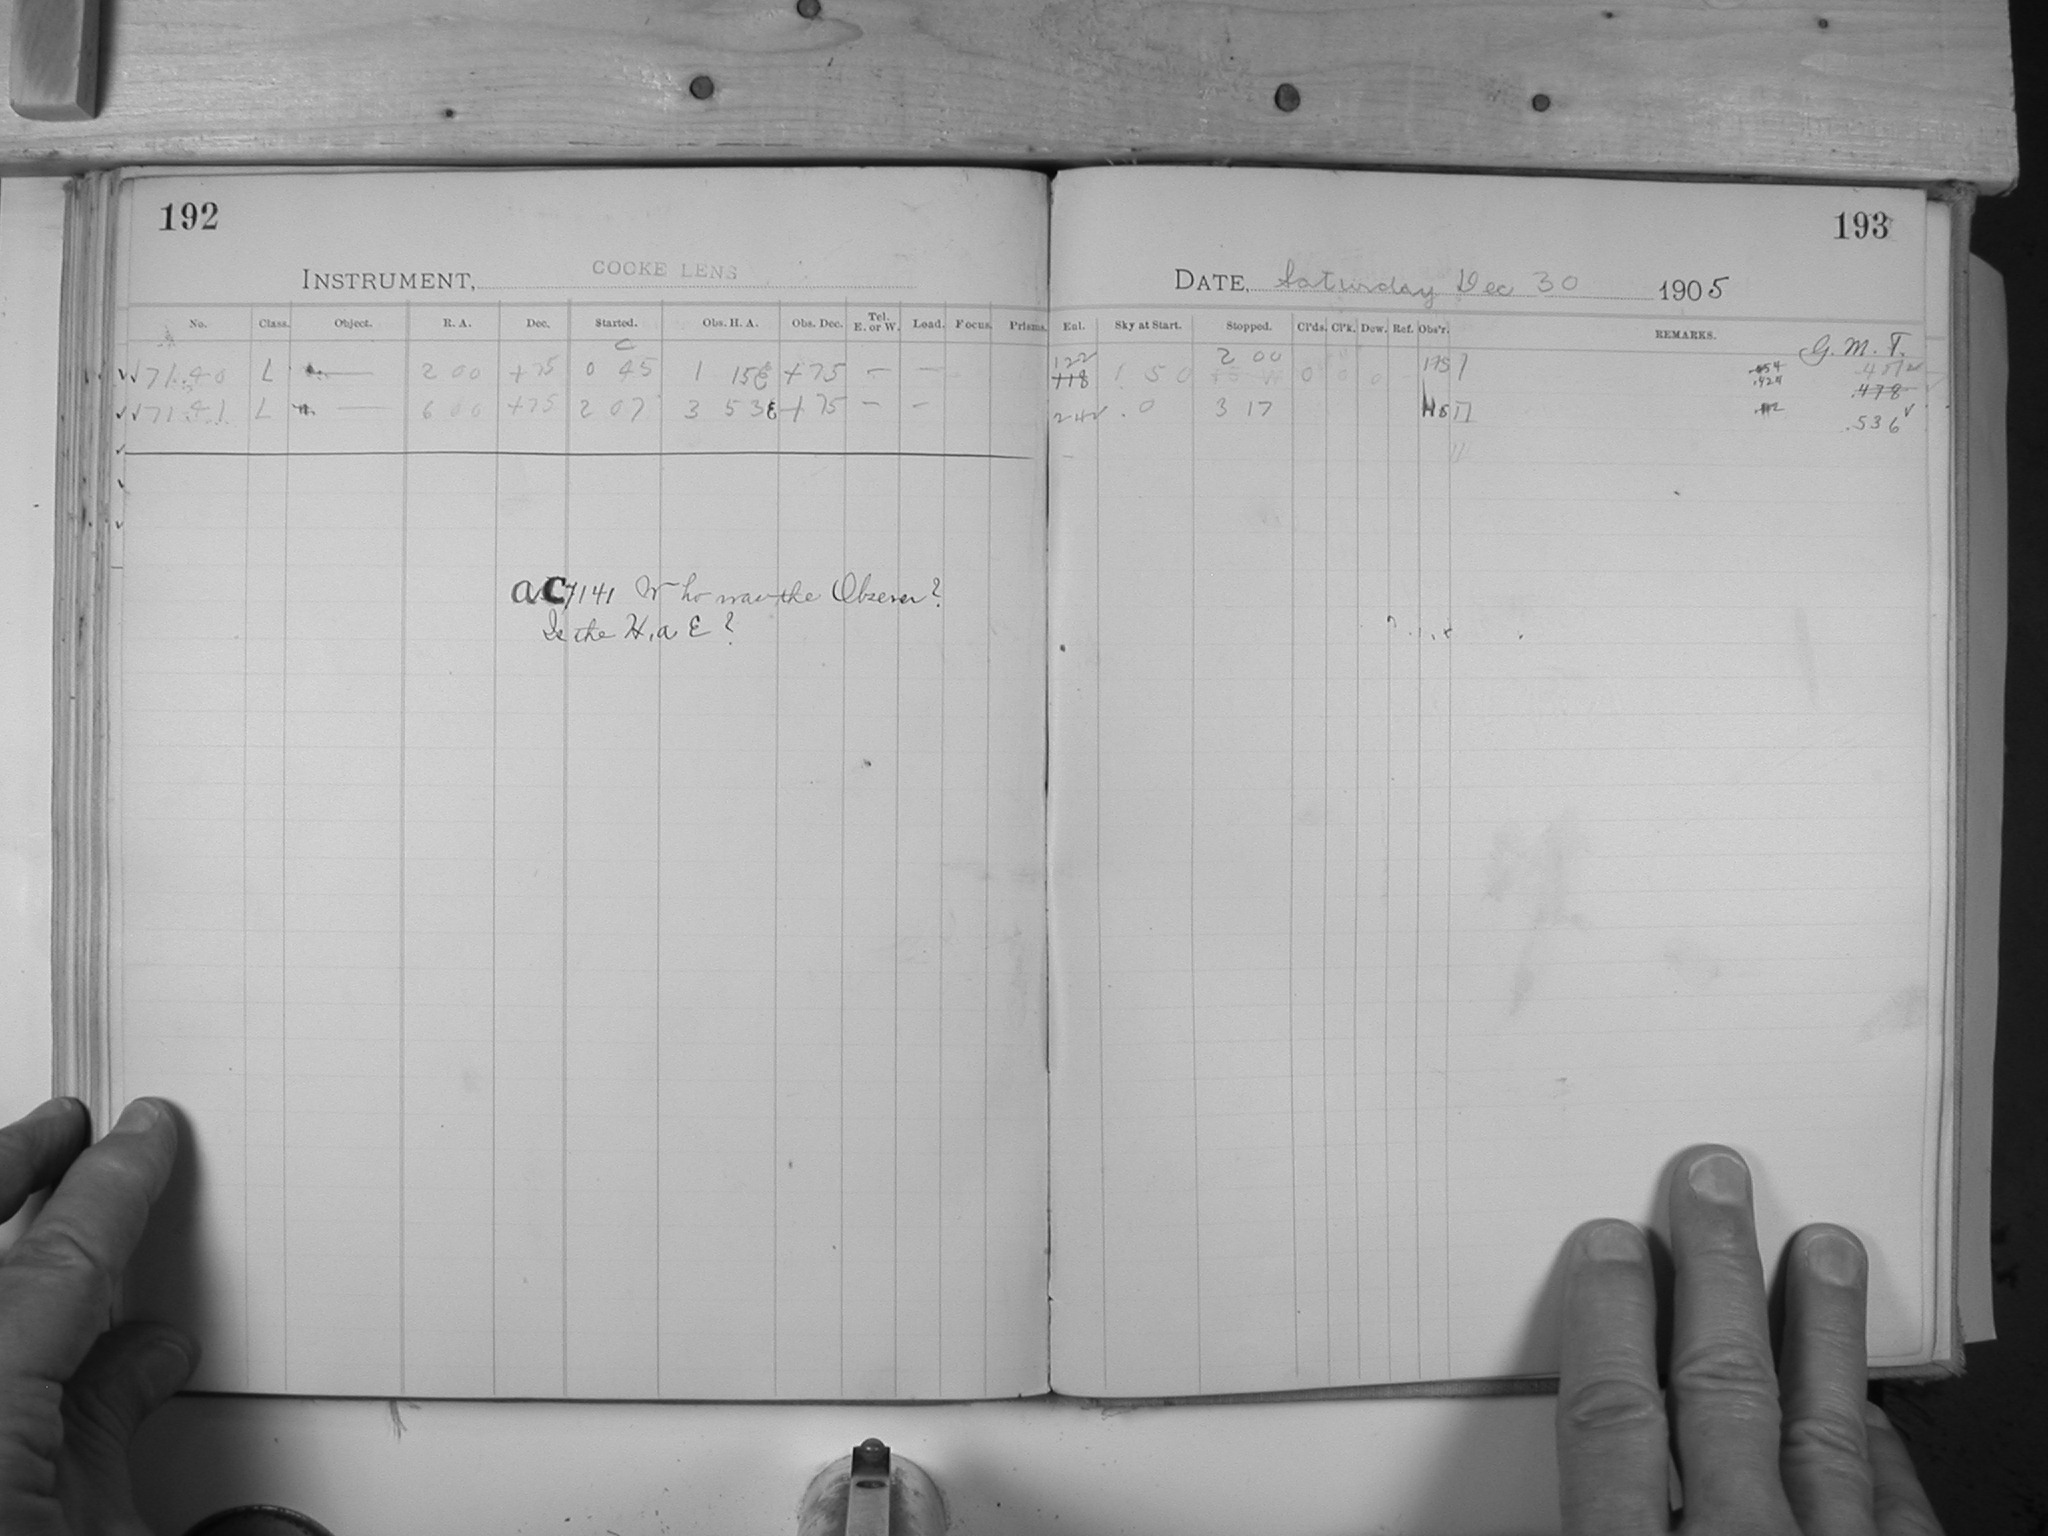 192
INSTRUMENT, COOKE LENS
No. Class. Object. R. A. Dec. Started. Obs. H. A. Obs. Dec. Tel. E. or W. Load. Focus. Prisms.
7140 L — 2 00 +75 0 45 1 15 E +75 — —
7141 L — 6 00 +75 2 07 3 53 E +75 — —
ac 7141 Who was the Observer?
Is the H.a E?
193
DATE, Saturday Dec 30 1905
Eal. Sky at Start. Stopped. Cl'ds. Cl'k. Dew. Ref. Obs'r. REMARKS.
G. M. T.
122 2 00
118 1 50 0 0 0 .454
.424 .478
242 .0 3 17 .536